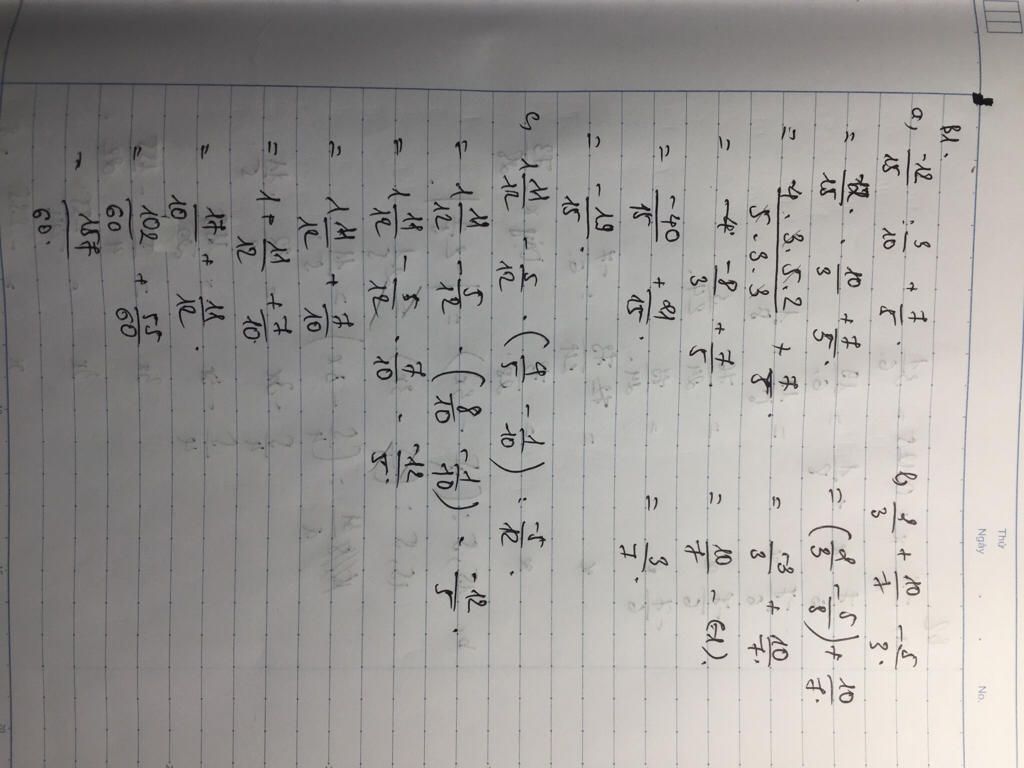 Thứ
Ngày
No.
B1.
a, -12/15 : 3/10 + 7/5.
= -12/15 . 10/3 + 7/5.
= -4.3.5.2/5.3.3 + 7/5.
= -8/3 + 7/5
= -40/15 + 21/15.
= -19/15.
b, 2/3 + 10/7 - 5/3.
= (2/3 - 5/3) + 10/7.
= -3/3 + 10/7.
= 10/7 - (-1).
= 3/7.
c, 1 11/12 - 5/12 . (4/5 - 1/10) : -5/12.
= 1 11/12 - 5/12 . (8/10 - 1/10) . -12/5.
= 1 11/12 - 5/12 . 7/10 . -12/5.
= 1 11/12 + 7/10
= 1 + 11/12 + 7/10
= 17/10 + 11/12.
= 102/60 + 55/60
= 157/60.